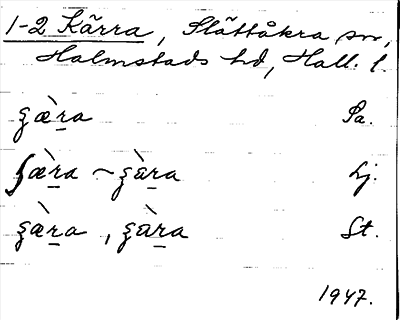 1-2 Kärra, Slättåkra sn,
Halmstads hd, Hall. l.
ʂæ̀ṟa Pa.
ʃæ̀ṟa ~ ʂàṟa Lj.
ʂæ̀ṟa, ʂàṟa St.
1947.